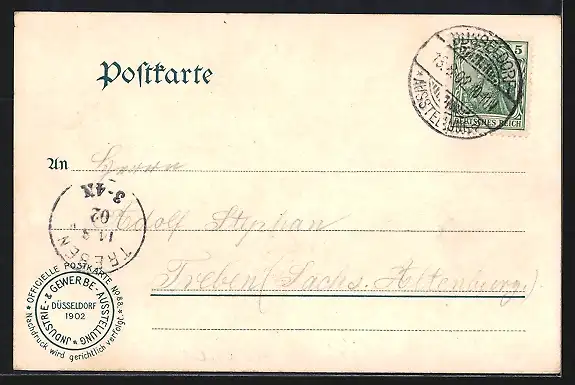 Postkarte
5
DÜSSELDORF
DEUTSCHES REICH
* AUSSTELLUNG *
An Herrn
Adolf Stephan
Treben (Sachs. Altenburg.)
TREBEN
02
3-4N
* OFFICIELLE POSTKARTE No 88. *
Nachdruck wird gerichtlich verfolgt.
JNDUSTRIE- & GEWERBE-AUSSTELLUNG *
DÜSSELDORF
1902